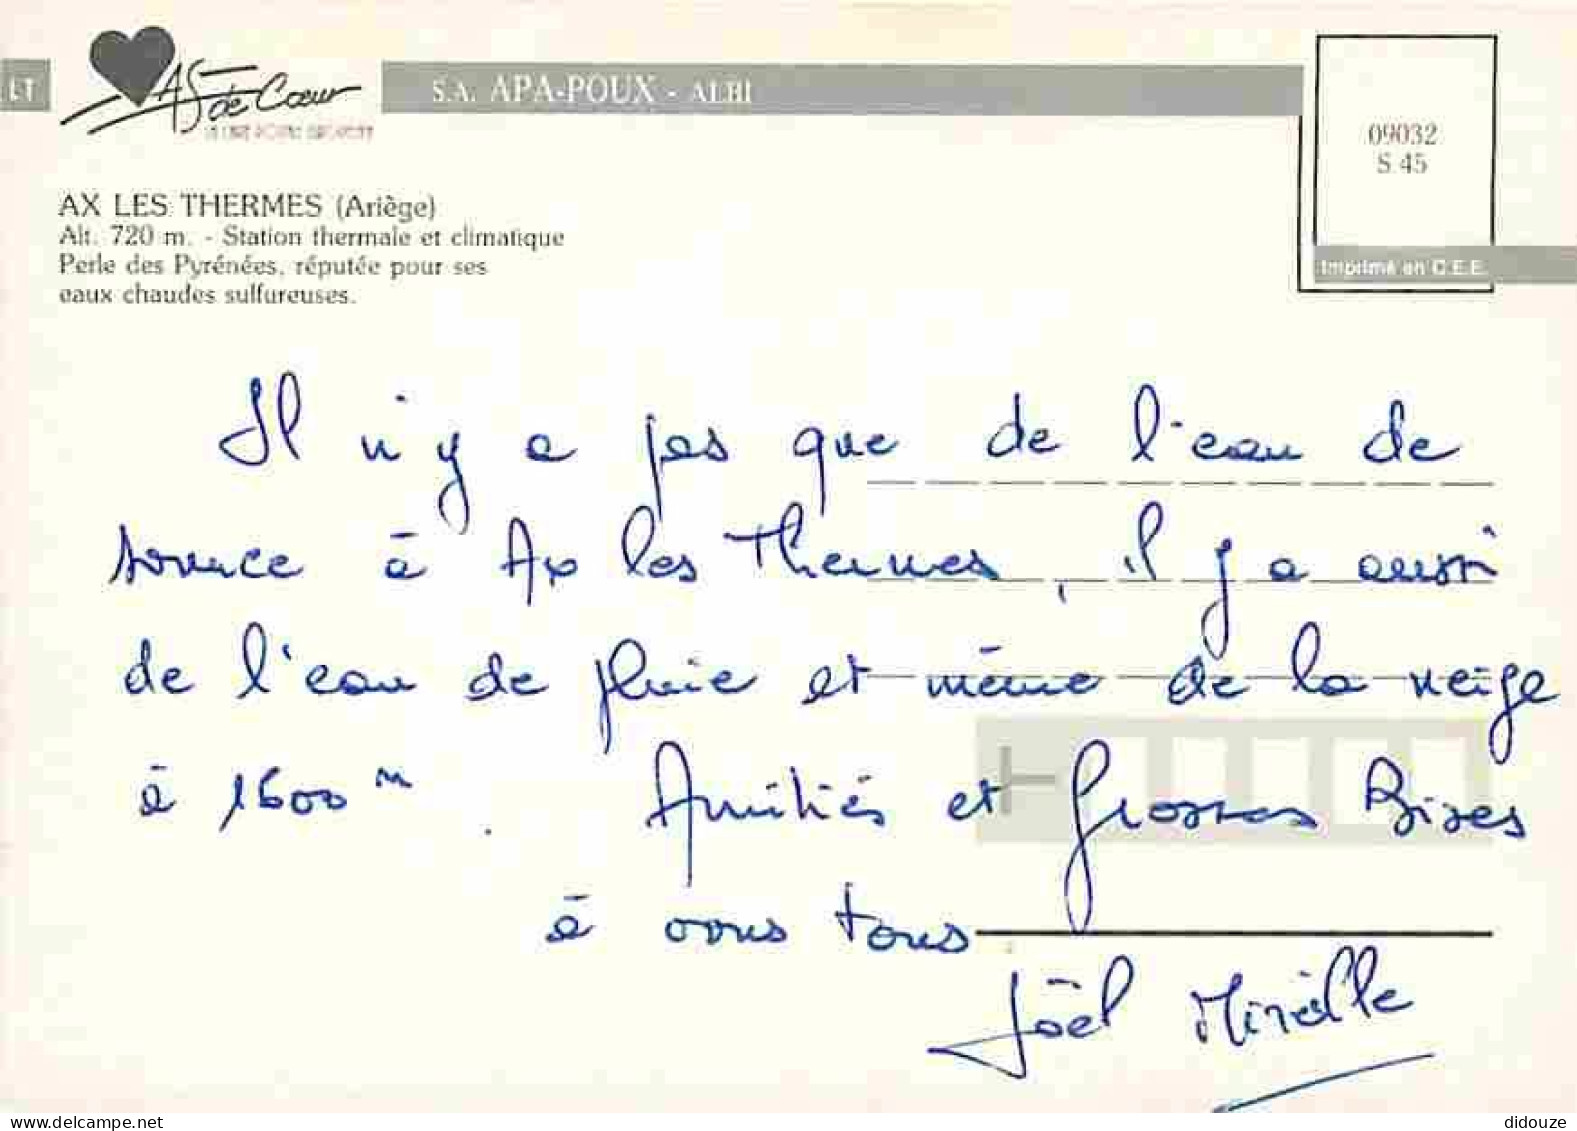 LT
AS de Cœur
S.A. APA-POUX - ALBI
09032
S 45
AX LES THERMES (Ariège)
Alt. 720 m. - Station thermale et climatique
Perle des Pyrénées, réputée pour ses
eaux chaudes sulfureuses.
Imprimé en C.E.E.
Il n'y a pas que de l'eau de
source à Ax les Thermes, il y a aussi
de l'eau de pluie et même de la neige
à 1600 m. Amitiés et Grosses Bises
à vous tous
Joël Mireille
delcampe.net
didouze